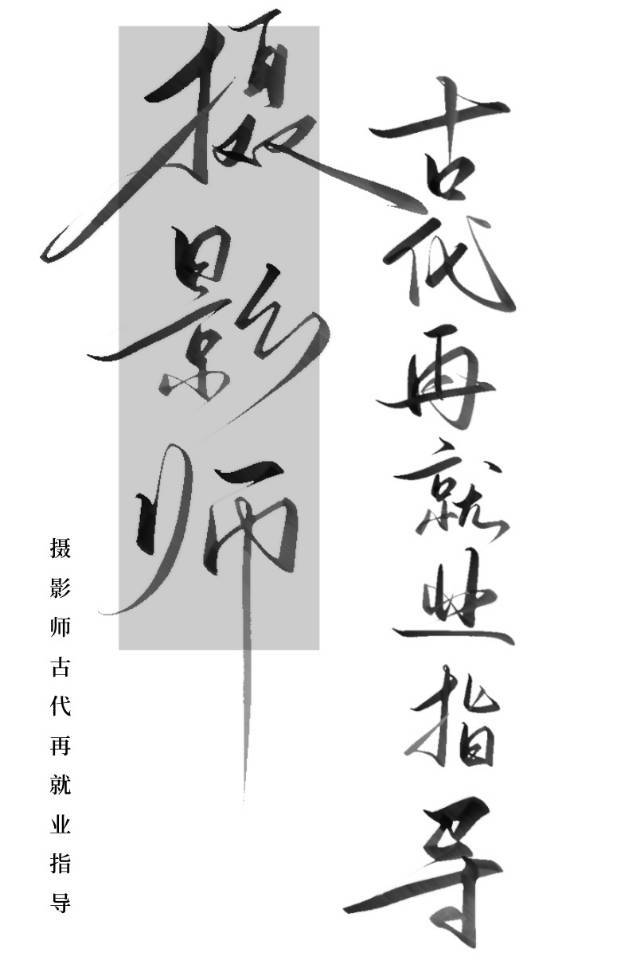 摄影师
古代再就业指导
摄影师古代再就业指导